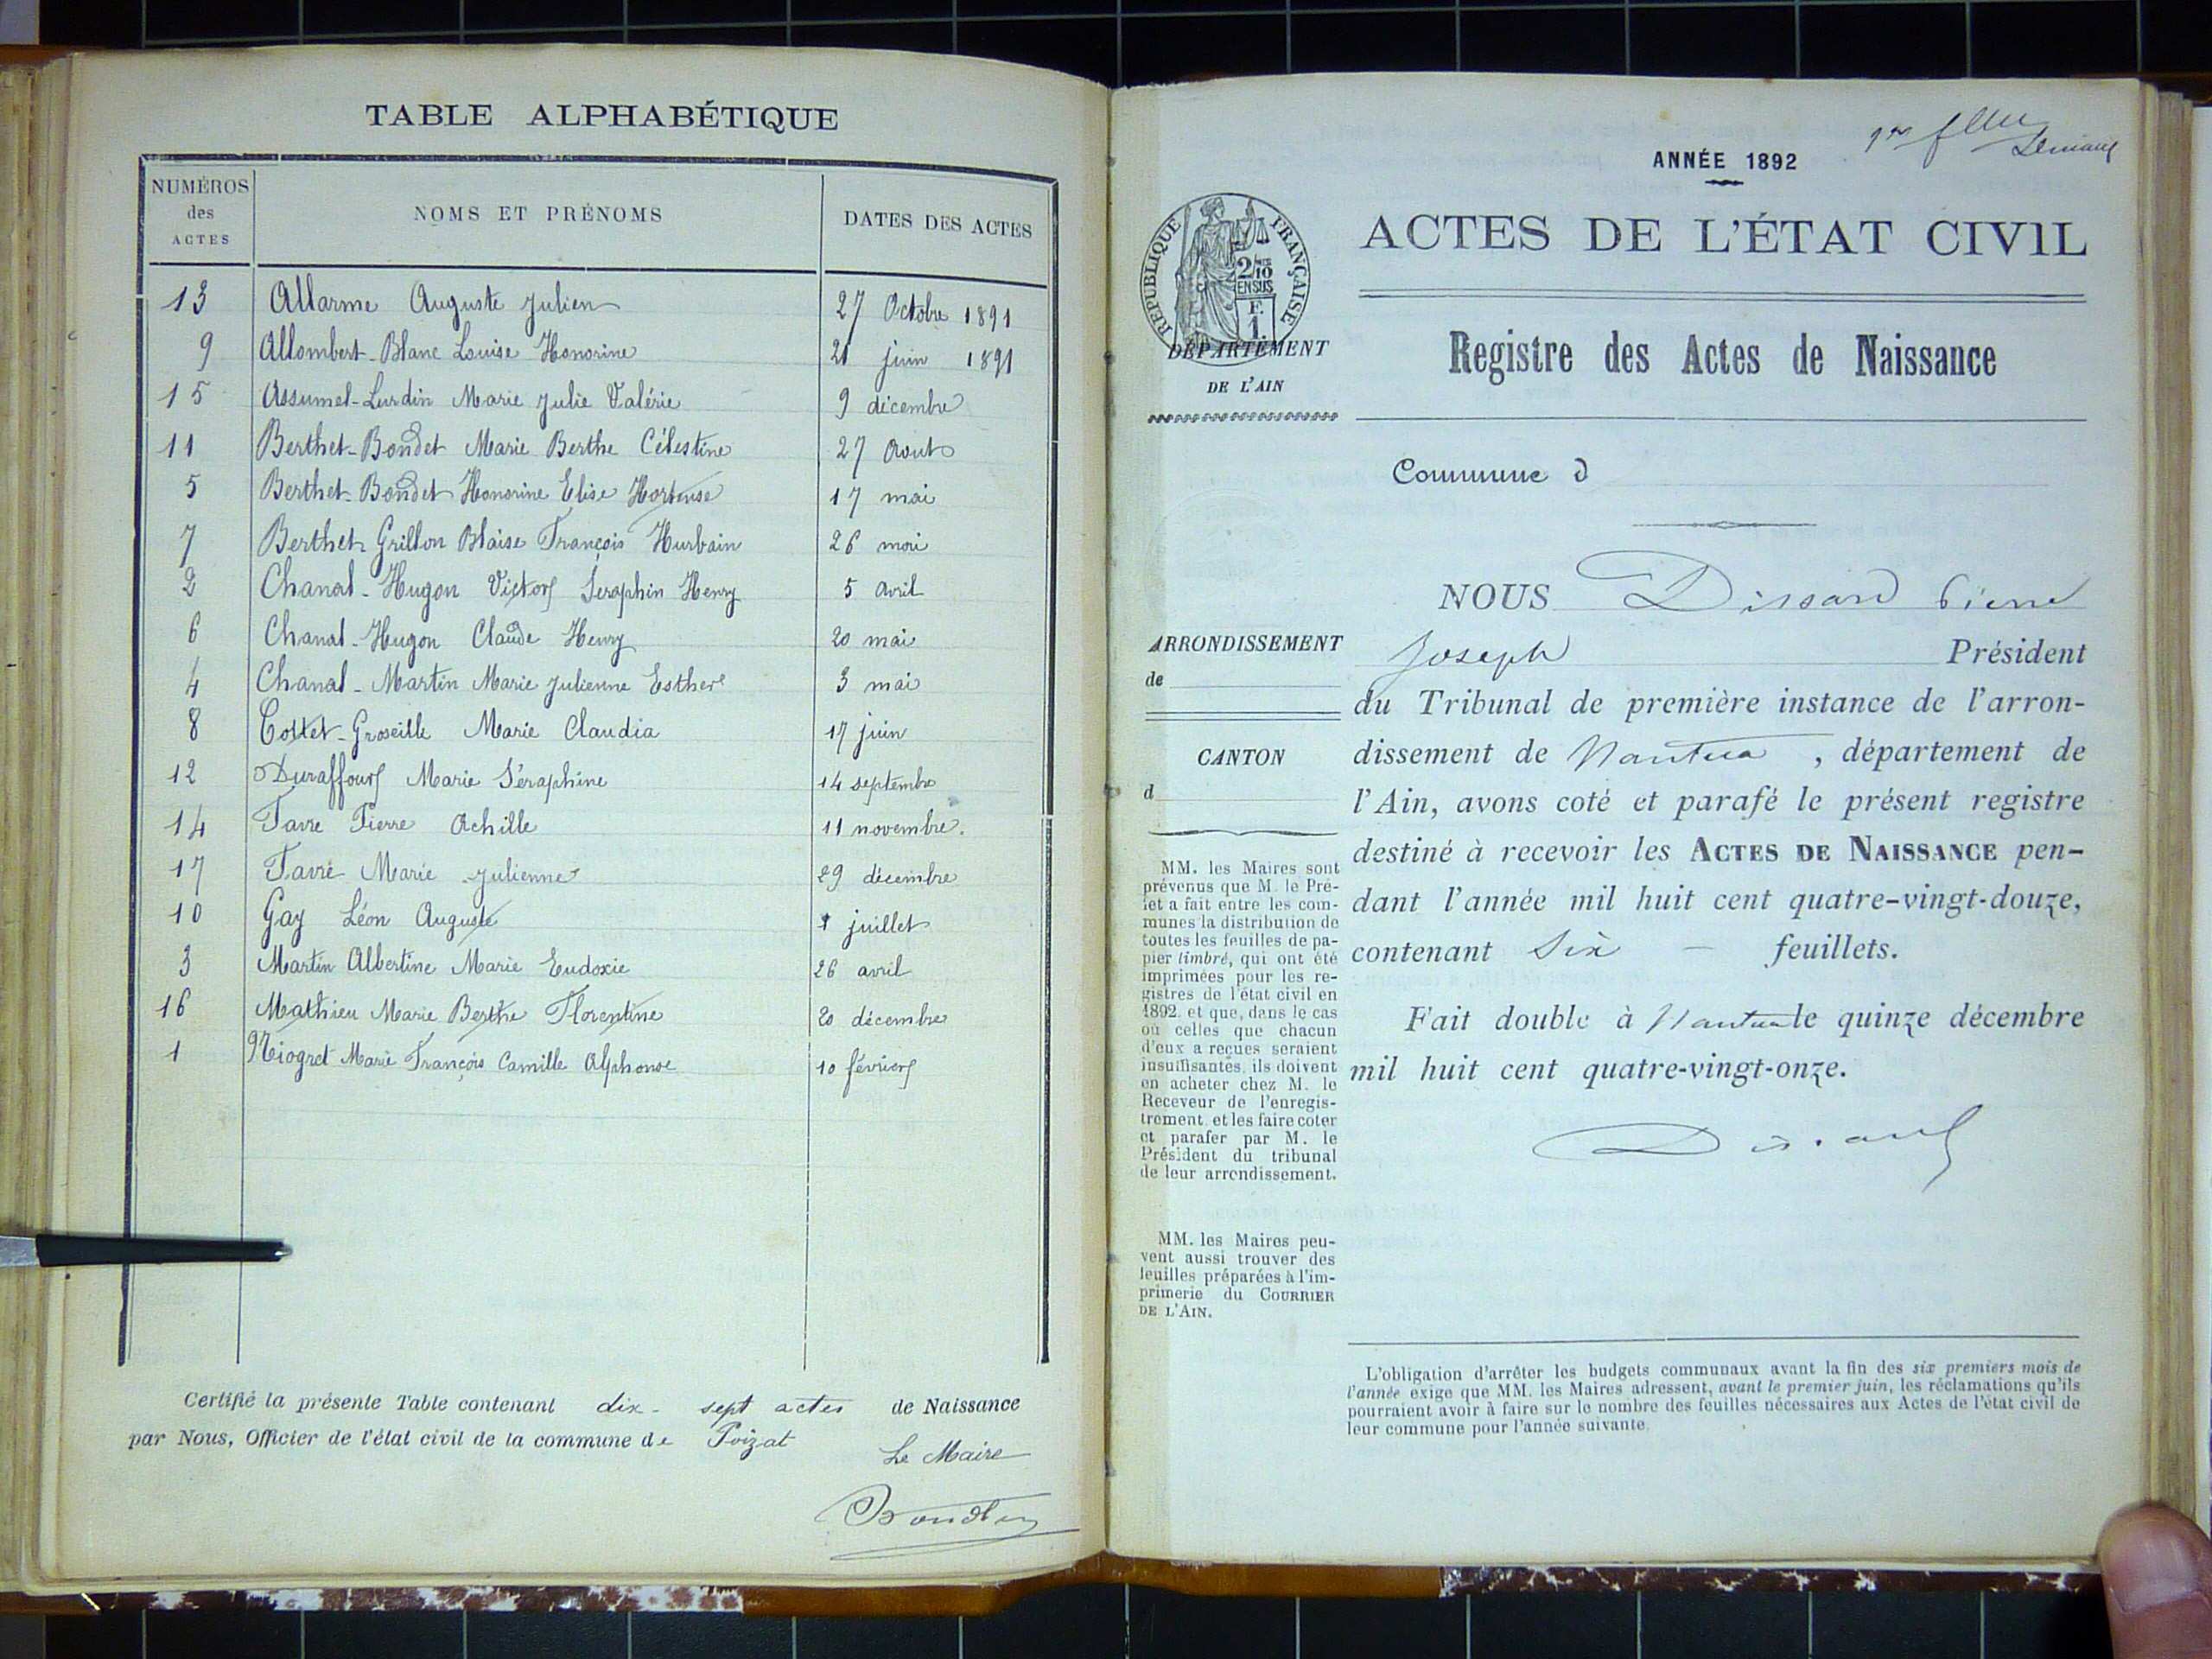 TABLE ALPHABÉTIQUE
NUMÉROS des ACTES NOMS ET PRÉNOMS DATES DES ACTES
13 Allarme Auguste Julien 27 Octobre 1891
9 Allombert-Blanc Louise Honorine 21 juin 1891
15 Assumel-Lurdin Marie Julie Valérie 9 décembre
11 Berthet-Bondet Marie Berthe Célestine 27 Aout
5 Berthet-Bondet Honorine Elise Hortense 17 mai
7 Berthet-Grillon Blaise François Hurbain 26 mai
2 Chanal-Hugon Victor Séraphin Henry 5 Avril
6 Chanal-Hugon Claude Henry 20 mai
4 Chanal-Martin Marie Julienne Esther 3 mai
8 Cottet-Groseille Marie Claudia 17 juin
12 Duraffour Marie Séraphine 14 septembre
14 Favre Pierre Achille 11 novembre.
17 Favre Marie Julienne 29 décembre
10 Gay Léon Auguste juillet
3 Martin Albertine Marie Eudoxie 26 avril
16 Mathieu Marie Berthe Florentine 20 décembre
1 Niogret Marie François Camille Alphonse 10 février
Certifié la présente Table contenant dix-sept actes de Naissance
par Nous, Officier de l'état civil de la commune de Poizat
Le Maire
ANNÉE 1892
ACTES DE L'ÉTAT CIVIL
RÉPUBLIQUE FRANÇAISE
2/10 EN SUS
F.
1.
DÉPARTEMENT
DE L'AIN
Registre des Actes de Naissance
Commune d
ARRONDISSEMENT
de
CANTON
d
NOUS Dissard Pierre
Joseph Président
du Tribunal de première instance de l'arron-
dissement de Nantua, département de
l'Ain, avons coté et parafé le présent registre
destiné à recevoir les ACTES DE NAISSANCE pen-
dant l'année mil huit cent quatre-vingt-douze,
contenant Six – feuillets.
Fait double à Nantua le quinze décembre
mil huit cent quatre-vingt-onze.
Dissard
MM. les Maires sont
prévenus que M. le Pré-
fet a fait entre les com-
munes la distribution de
toutes les feuilles de pa-
pier timbré, qui ont été
imprimées pour les re-
gistres de l'état civil en
1892, et que, dans le cas
où celles que chacun
d'eux a reçues seraient
insuffisantes, ils doivent
en acheter chez M. le
Receveur de l'enregis-
trement, et les faire coter
et parafer par M. le
Président du tribunal
de leur arrondissement.
MM. les Maires peu-
vent aussi trouver des
feuilles préparées à l'im-
primerie du COURRIER
DE L'AIN.
L'obligation d'arrêter les budgets communaux avant la fin des six premiers mois de
l'année exige que MM. les Maires adressent, avant le premier juin, les réclamations qu'ils
pourraient avoir à faire sur le nombre des feuilles nécessaires aux Actes de l'état civil de
leur commune pour l'année suivante.